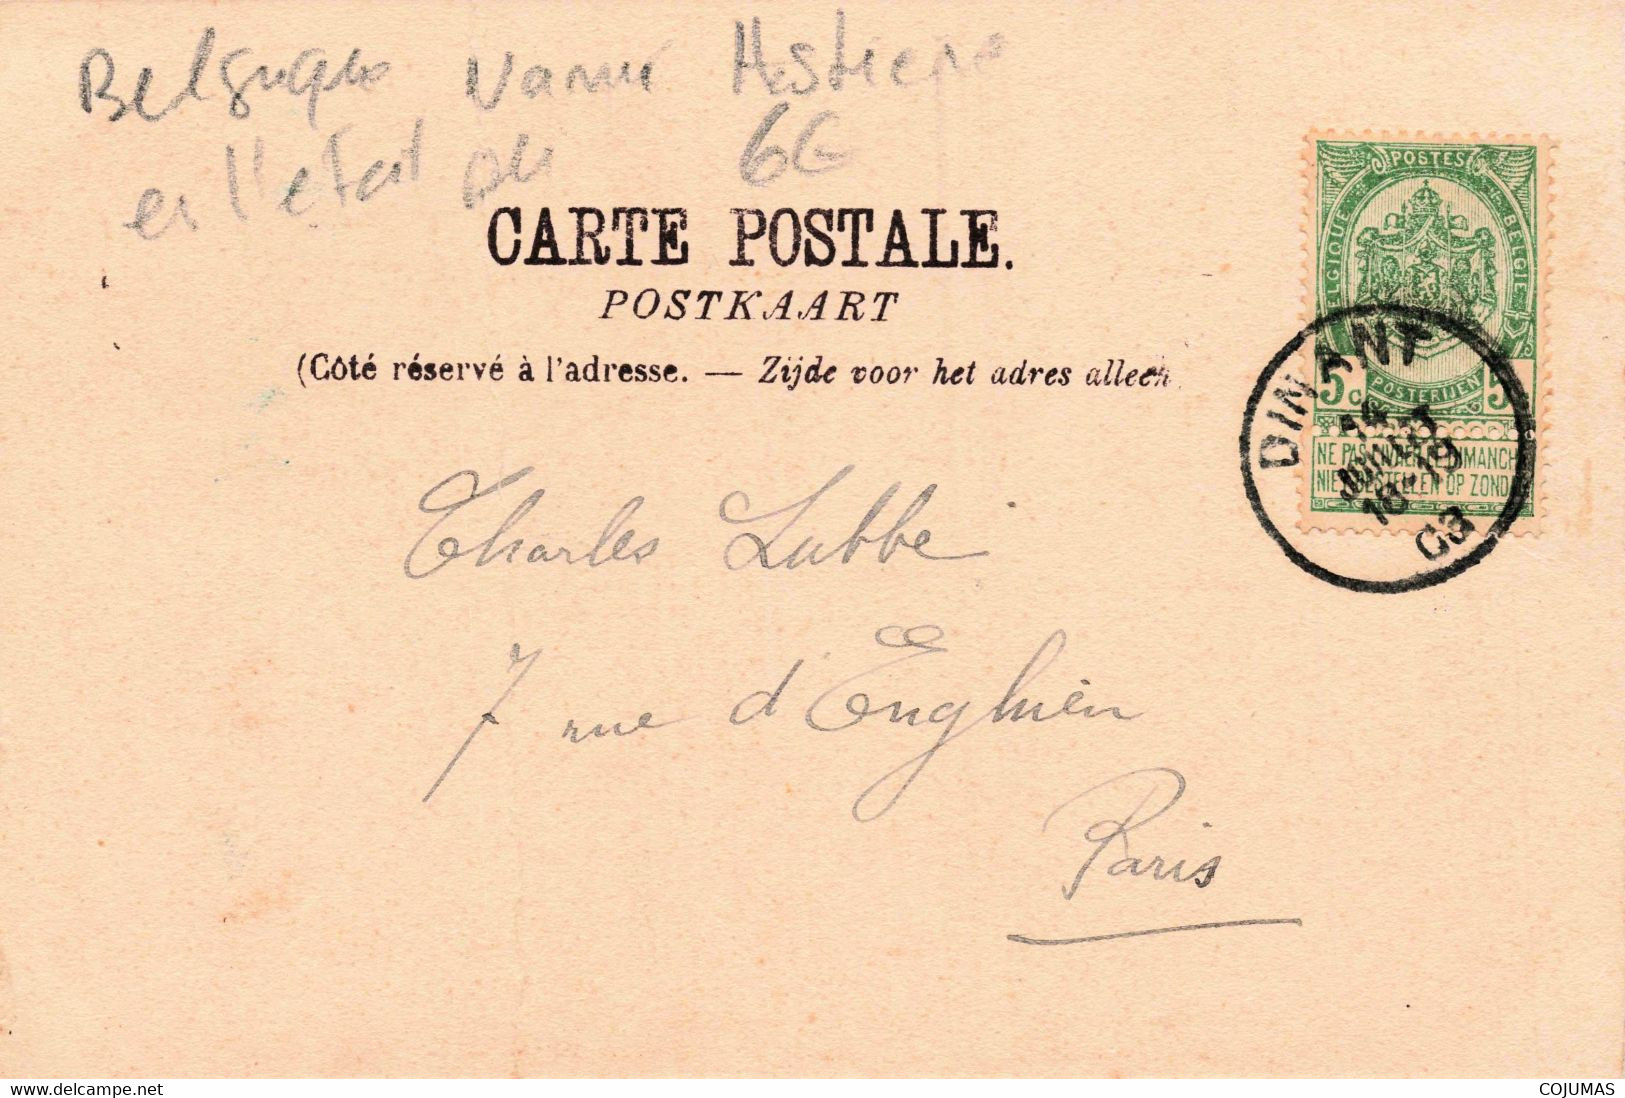 Belgique Namur Hastière
en l'état
6€
CARTE POSTALE.
POSTKAART
(Côté réservé à l'adresse. — Zijde voor het adres alleen
POSTES
BELGIQUE BELGIE
POSTERIJEN
5c 5
NE PAS LIVRER LE DIMANCH
NIET BESTELLEN OP ZONDA
DINANT
14
JUILLET
18-19
03
Charles Labbé
7 rue d'Enghien
Paris
COJUMAS